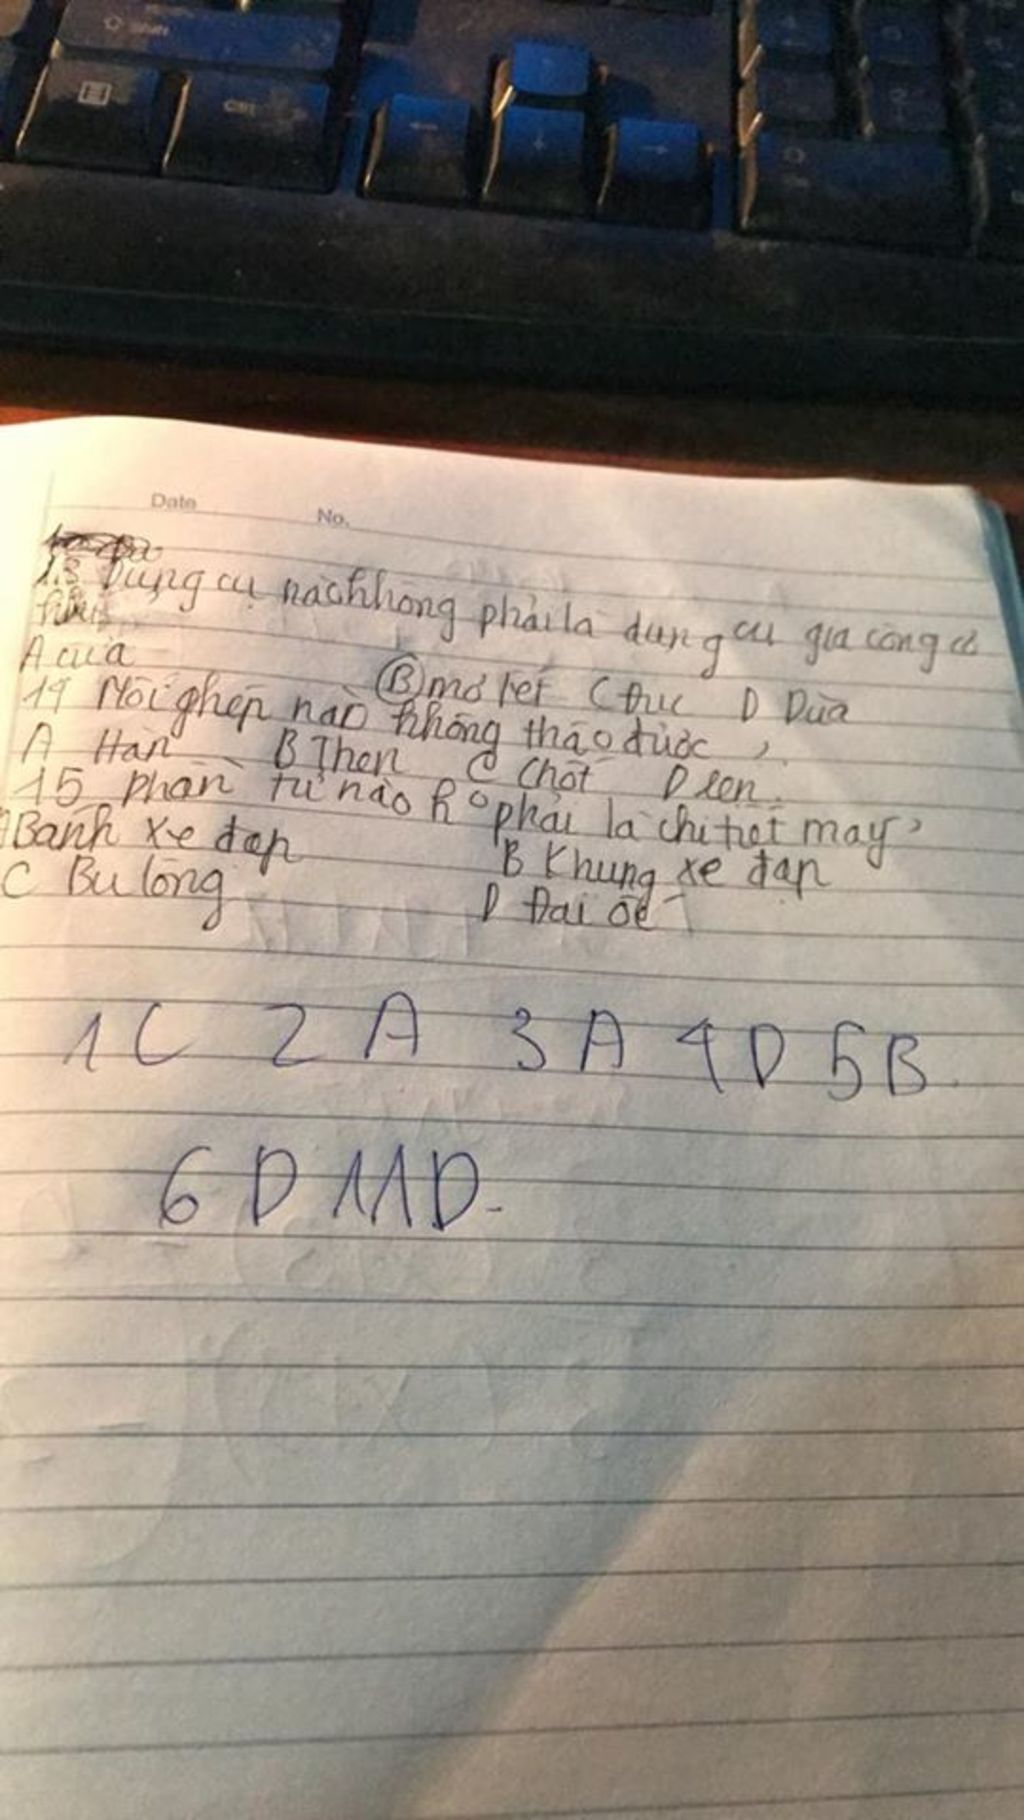 Shift
Ctrl
Date No.
1.3 Dụng cụ nào không phải là dụng cụ gia công cơ
A cưa B mỏ lết C đục D Dũa
14 Mối ghép nào không tháo được
A Hàn B Then C Chốt D ren
15 phần tử nào ko phải là chi tiết máy
A Bánh xe đạp B Khung xe đạp
C Bu lông D Đai ốc
1C 2A 3A 4D 5B.
6D 11D.